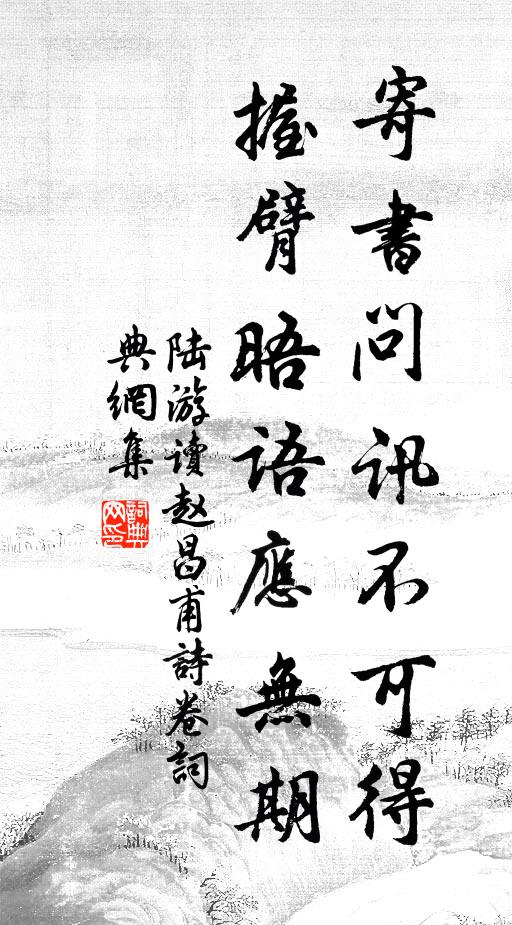 寄書問訊不可得
握臂晤語應無期
陆游读赵昌甫詩卷詞
典網集
詞典
网印